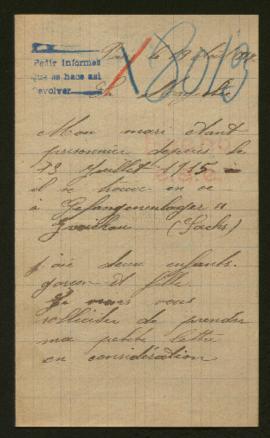 Pedir informes
que se hace así
Devolver
8013
Mon mari étant
prisonnier depuis le
19 Juillet 1915
il se trouve en ce
à Gefangenenlager à
Zwickau (Sachs)
j'ai deux enfants.
garçon et fille
Je vous
solliciter de prendre
ma petite lettre
en considération